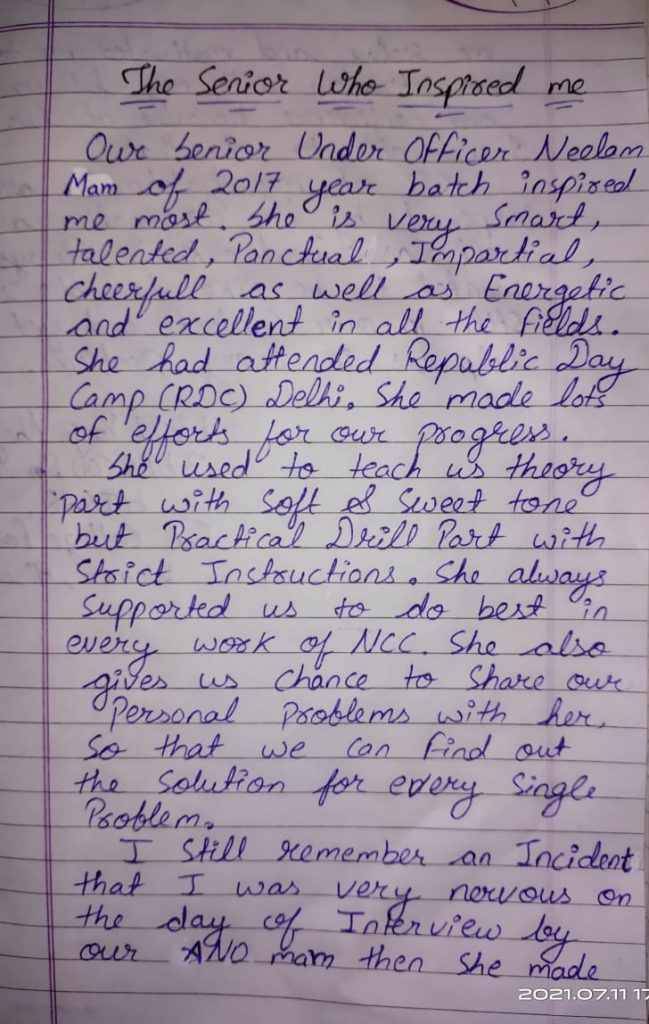 The Senior Who Inspired me
Our Senior Under Officer Neelam
Mam of 2017 year batch inspired
me most. She is very Smart,
talented, Panctual, Impartial,
cheerfull as well as Energetic
and excellent in all the fields.
She had attended Republic Day
Camp (RDC) Delhi. She made lots
of efforts for our progress.
She used to teach us theory
part with Soft & Sweet tone
but Practical Drill Part with
Strict Instructions. She always
Supported us to do best in
every work of NCC. She also
gives us Chance to Share our
Personal Problems with her,
So that we can find out
the Solution for every Single
Problem.
I Still remember an Incident
that I was very nervous on
the day of Interview by
our ANO mam then She made
2021.07.11 17